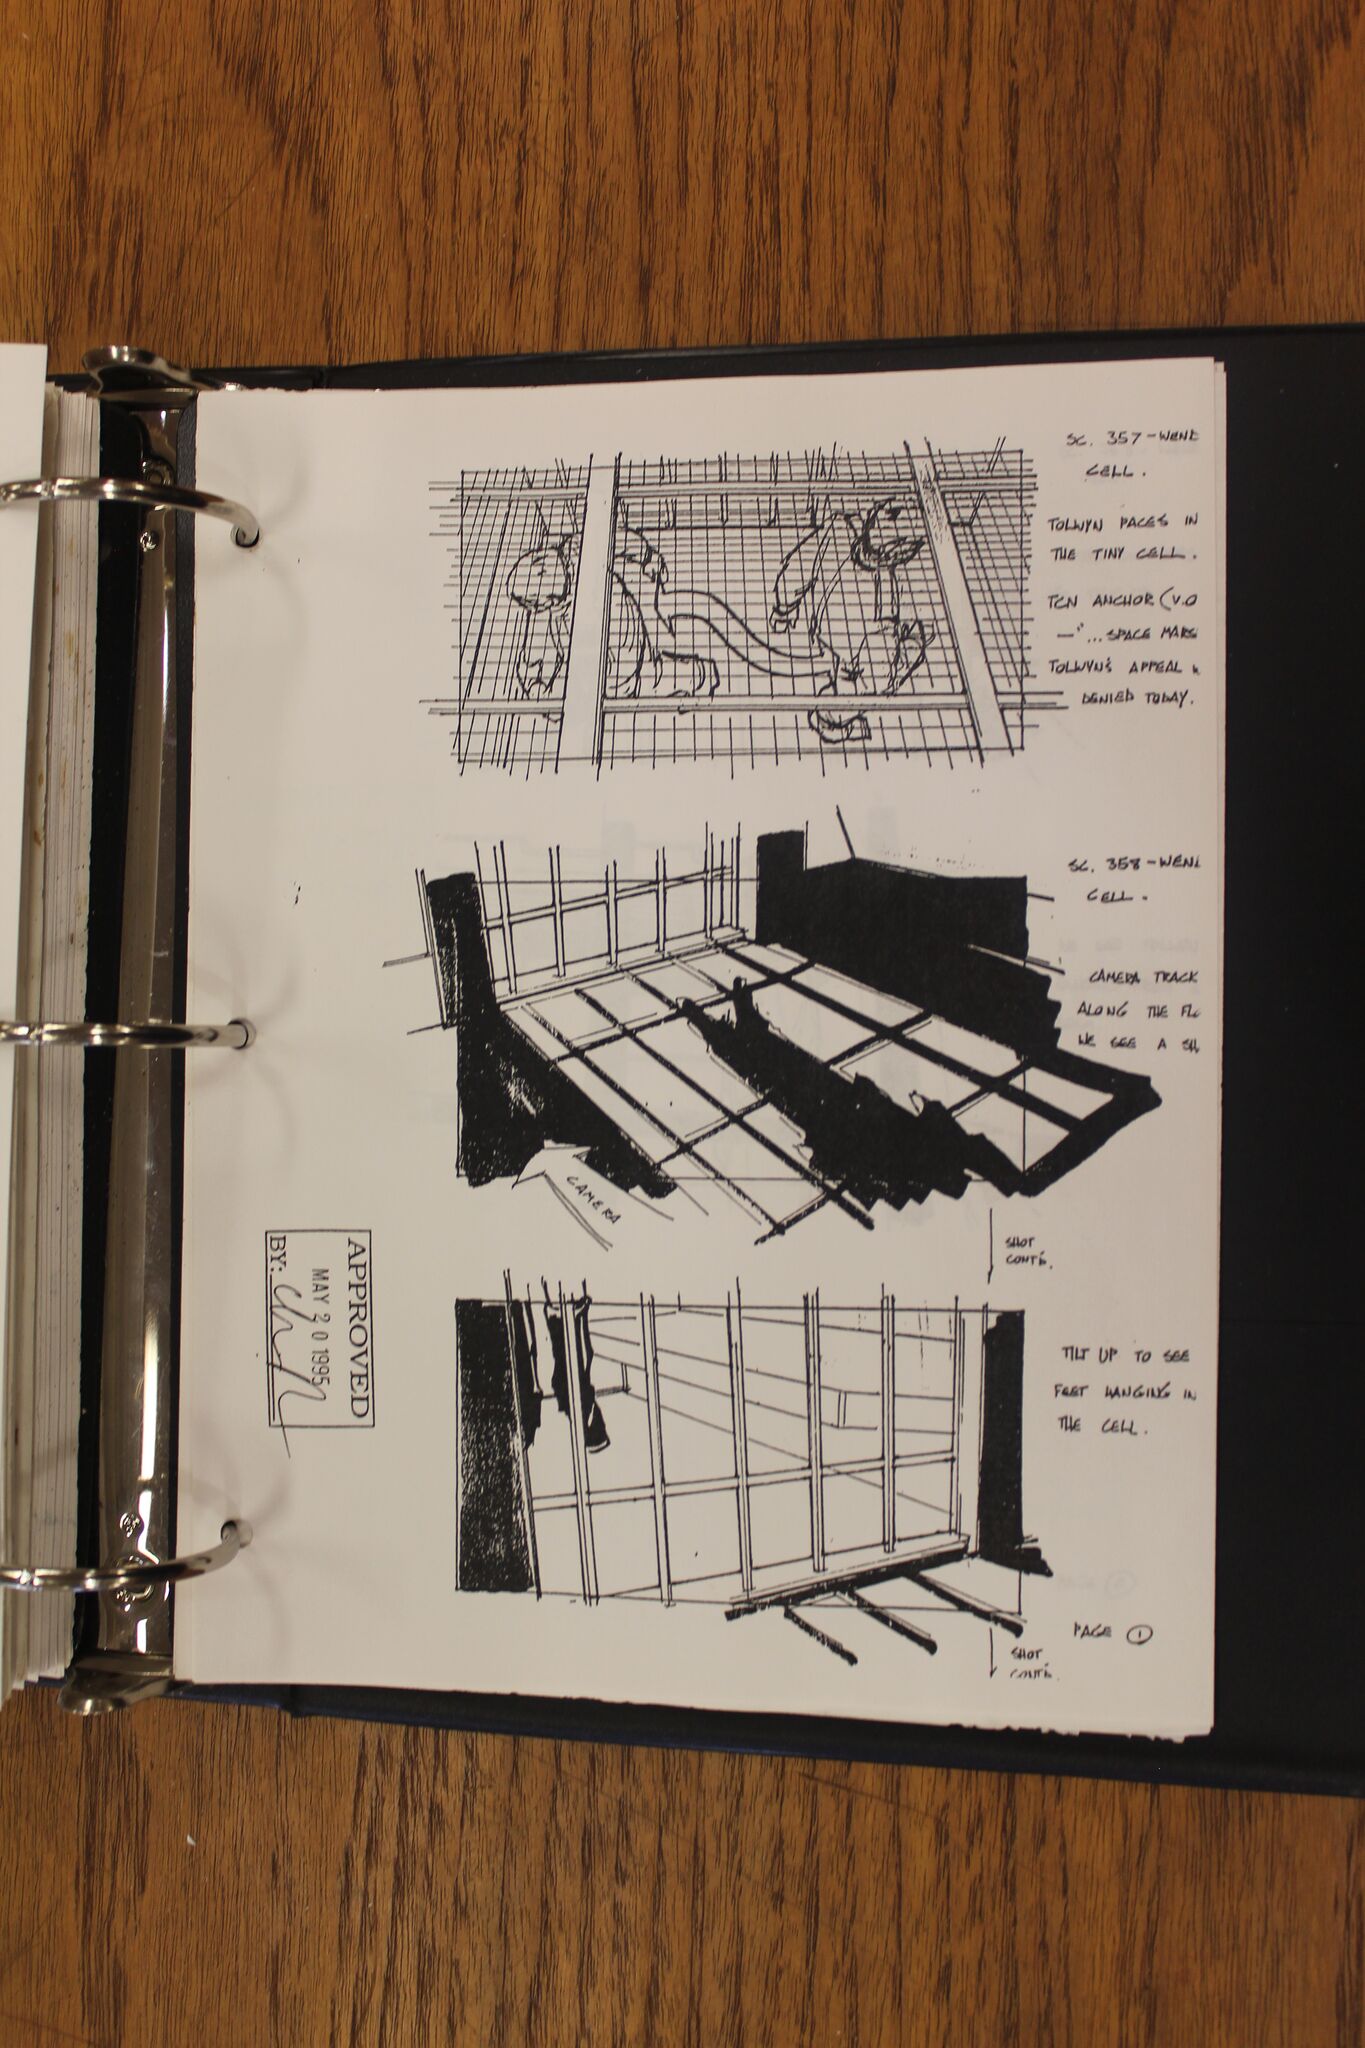 SC. 357 - WENE
CELL.
TOLWYN PACES IN
THE TINY CELL.
TCN ANCHOR (V.O
— "... SPACE MARS
TOLWYN'S APPEAL
DENIED TODAY.
SC. 358 - WENE
CELL.
CAMERA TRACK
ALONG THE FL
WE SEE A SH
CAMERA
SHOT
CONT'D.
TILT UP TO SEE
FEET HANGING IN
THE CELL.
PAGE 1
SHOT
CONT'D.
APPROVED
MAY 20 1995
BY: